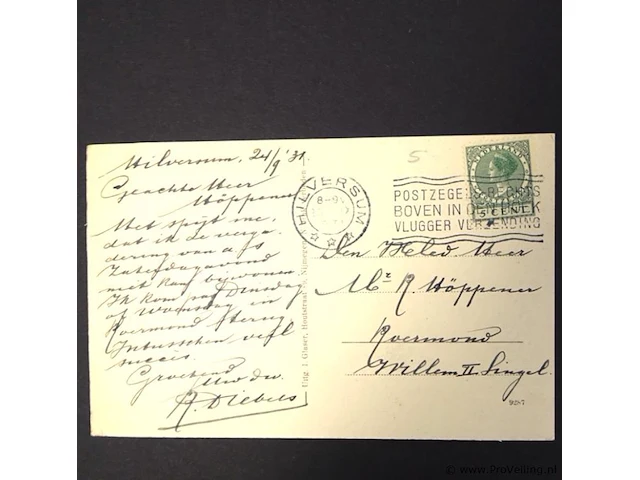 Hilversum, 24/9 '31
Geachte Heer
Höppener
Het spijt me,
dat ik de verga-
dering van a.s.
Zaterdagavond
niet kan bijwonen.
Ik kom pas Dinsdag
of Woensdag in
Roermond terug.
Intusschen veel
succes.
Groetend
Uw dw.
R. Diebels
Uitg. J. Glaser, Houtstraat Nijmegen
HILVERSUM
8-9
5
NEDERLAND
5 CENT
POSTZEGEL RECHTS
BOVEN IN DE HOEK
VLUGGER VERZENDING
Den Heled Heer
Mr R. Höppener
Roermond
Willem II Singel.
© www.ProVeiling.nl